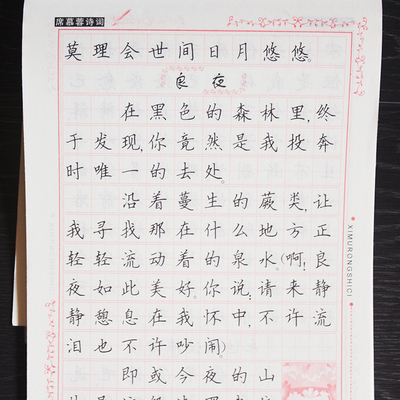 席慕蓉诗词
莫理会世间日月悠悠。
良夜
在黑色的森林里,终
于发现,你竟然是我投奔
时唯一的去处。
沿着蔓生的蕨类,让
我寻找那在什么地方正
轻轻流动着的泉水。(啊!良
夜如此美好。你说:请来静
静憩息在我怀中,不许流
泪也不许吵闹)
即或今夜的山
XIMURONGSHICI